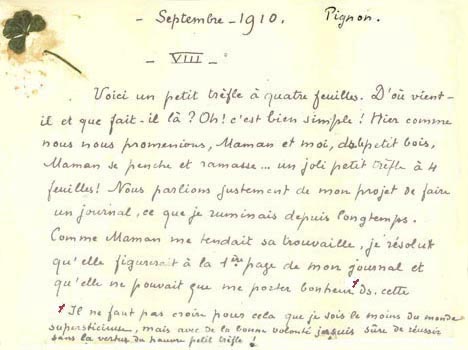 - Septembre - 1910. Pignon.
- VIII - .
Voici un petit trèfle à quatre feuilles. D'où vient-
il et que fait-il là ? Oh! c'est bien simple ! Hier comme
nous nous promenions, Maman et moi, ds le petit bois,
Maman se penche et ramasse... un joli petit trèfle à 4
feuilles! Nous parlions justement de mon projet de faire
un journal, ce que je ruminais depuis longtemps.
Comme Maman me tendait sa trouvaille, je résolus
qu'elle figurerait à la 1ère page de mon journal et
qu'elle ne pouvait que me porter bonheur † ds. cette
† Il ne faut pas croire pour cela que je sois le moins du monde
supersticieuse, mais avec de la bonne volonté je suis sûre de réussir
sans la vertu du pauvre petit trèfle !